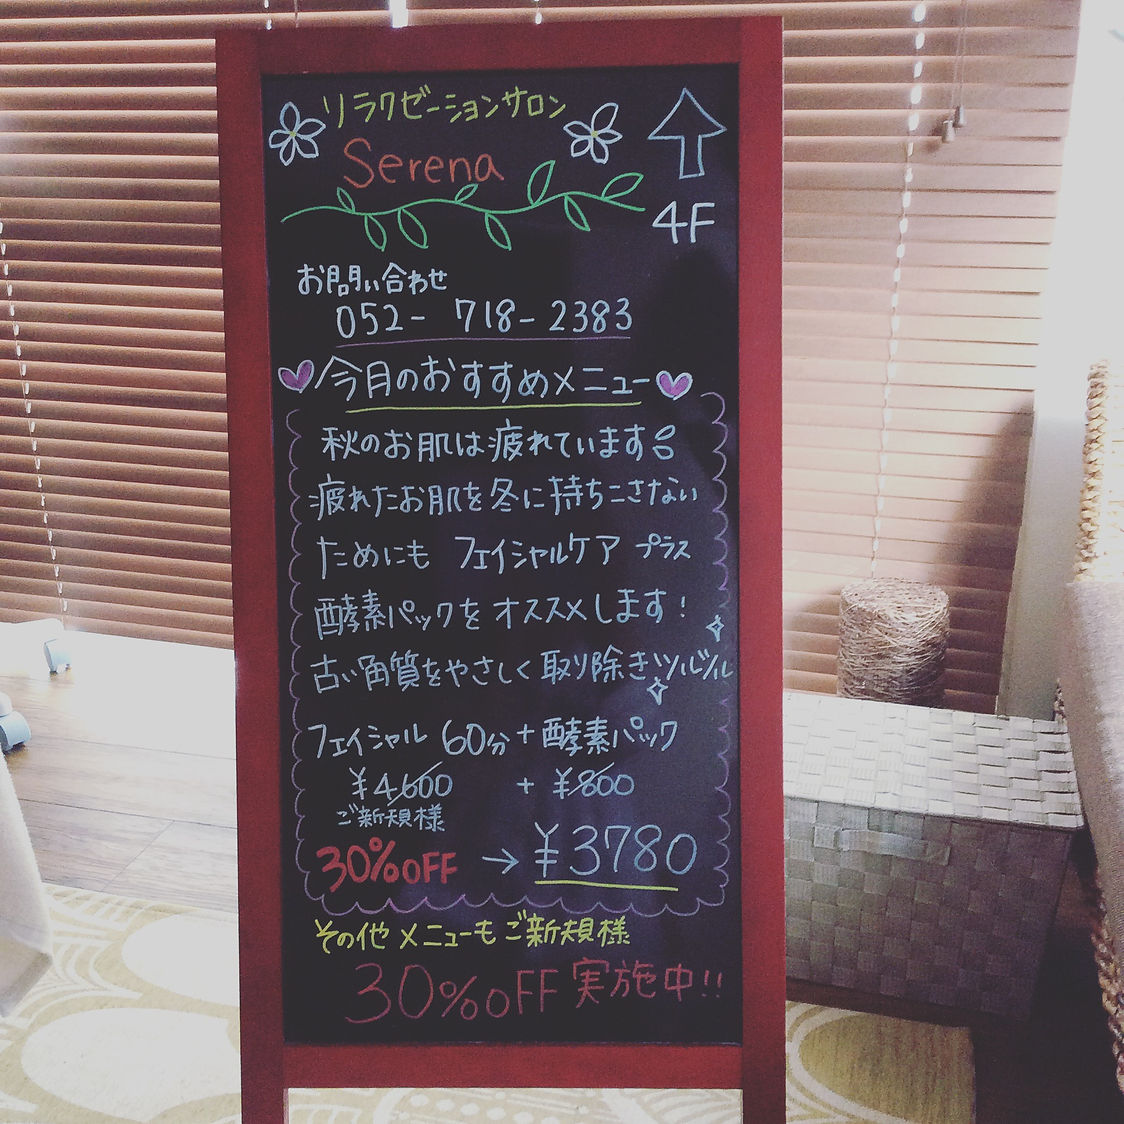 リラクゼーションサロン
Serena
4F
お問い合わせ
052-718-2383
今月のおすすめメニュー
秋のお肌は疲れています
疲れたお肌を冬に持ちこさない
ためにも フェイシャルケア プラス
酵素パックを オススメします!
古い角質をやさしく取り除きツルツル
フェイシャル 60分+酵素パック
¥4,600 + ¥800
ご新規様
30%OFF → ¥3780
その他メニューもご新規様
30%OFF実施中!!